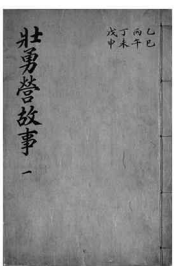 壯勇營故事 一
乙巳
丙午
丁未
戊申